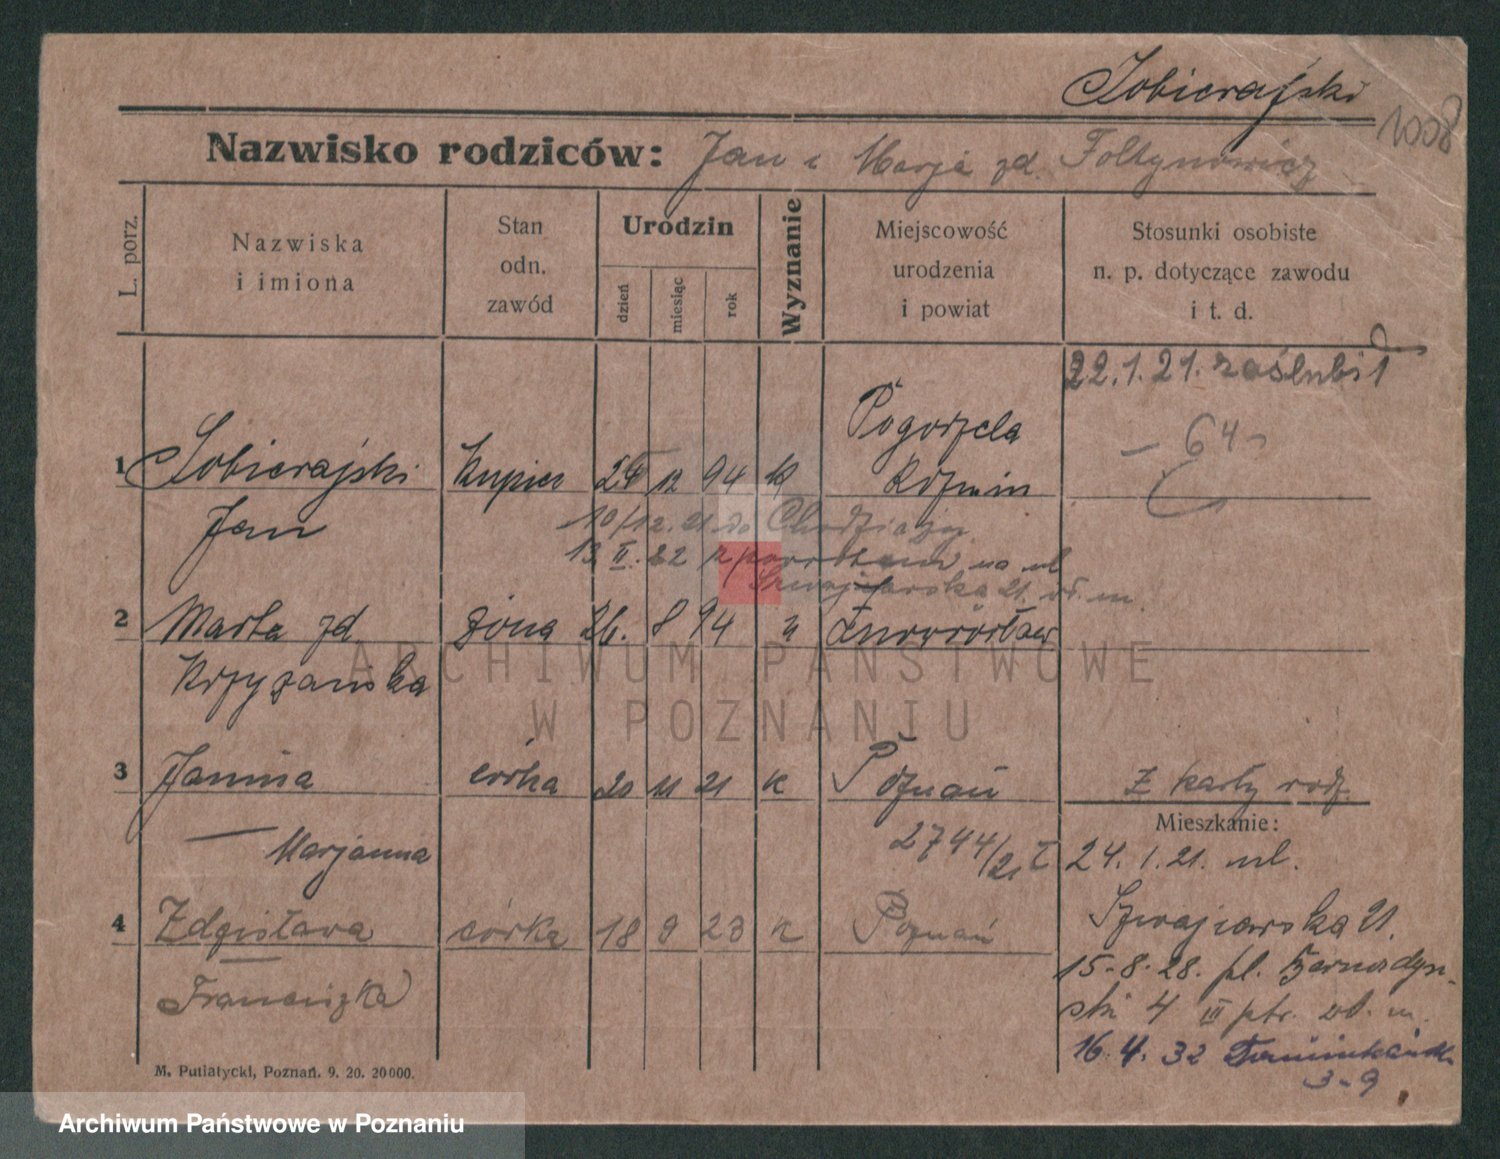 Sobierajski
1008
Nazwisko rodziców: Jan i Marja zd. Foltynowicz
L. porz.
Nazwiska i imiona
Stan odn. zawód
Urodzin
dzień
miesiąc
rok
Wyznanie
Miejscowość urodzenia i powiat
Stosunki osobiste n. p. dotyczące zawodu i t. d.
22.1.21. zaślubił
Pogorzela
- 64 -
1 Sobierajski kupiec 24 12 94 k Koźmin
Jan
10/12.21 do Chodzieży
13 II. 22 z powrotem na ul
Szwajcarska 21. wł. m.
2 Marta zd. żona 26. 8 94 k Inowrocław
Krzyżańska
ARCHIWUM PAŃSTWOWE
W POZNANIU
3 Janina córka 20 11 21 k Poznań Z karty rodz.
Mieszkanie:
Marjanna
2744/21
24. 1. 21. ul.
4 Zdzisława córka 18 9 23 k Poznań
Szwajcarska 21.
Franciszka
15-8-28. pl. Bernardyń-
ski 4 III ptr. wł. m.
16.4.32
3-9
M. Putiatycki, Poznań. 9. 20. 20000.
Archiwum Państwowe w Poznaniu